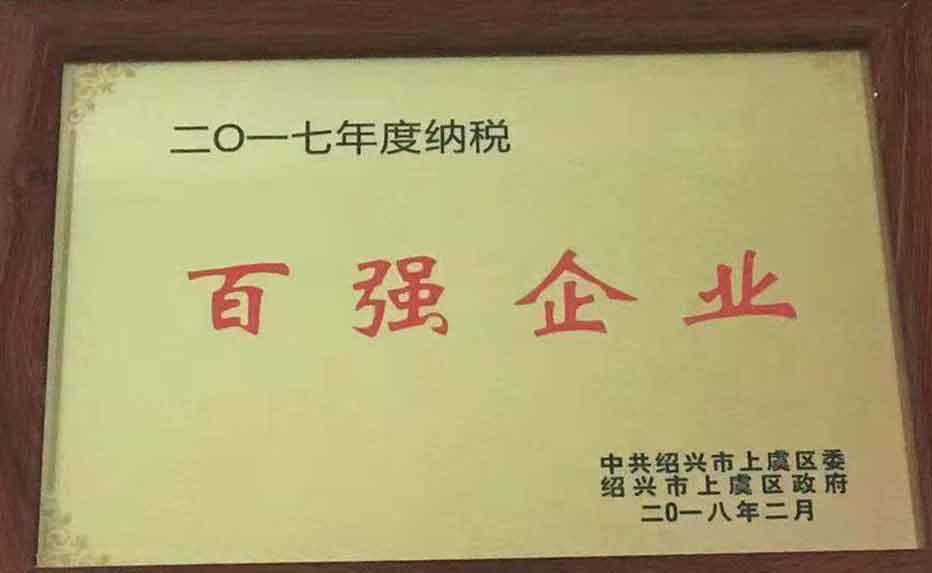 二〇一七年度纳税
百强企业
中共绍兴市上虞区委
绍兴市上虞区政府
二0一八年二月